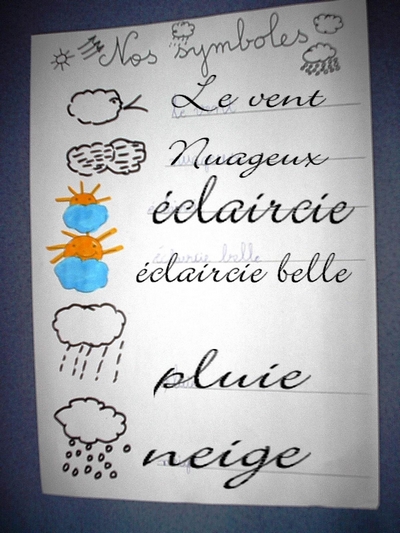 Nos symboles
Le vent
Nuageux
éclaircie
éclaircie belle
pluie
neige